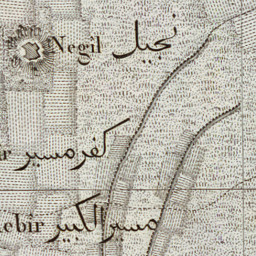 Negîl نجيل
كفر مسير
ebîr مسير الكبير